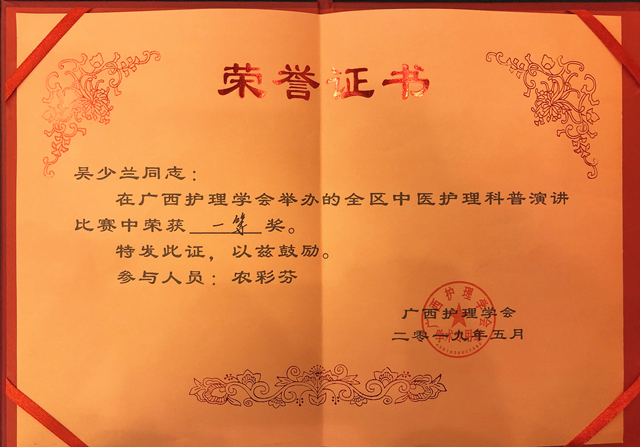 荣誉证书
吴少兰同志：
在广西护理学会举办的全区中医护理科普演讲
比赛中荣获 一等 奖。
特发此证，以兹鼓励。
参与人员：农彩芬
广西护理学会
二零一九年五月
广西护理学会